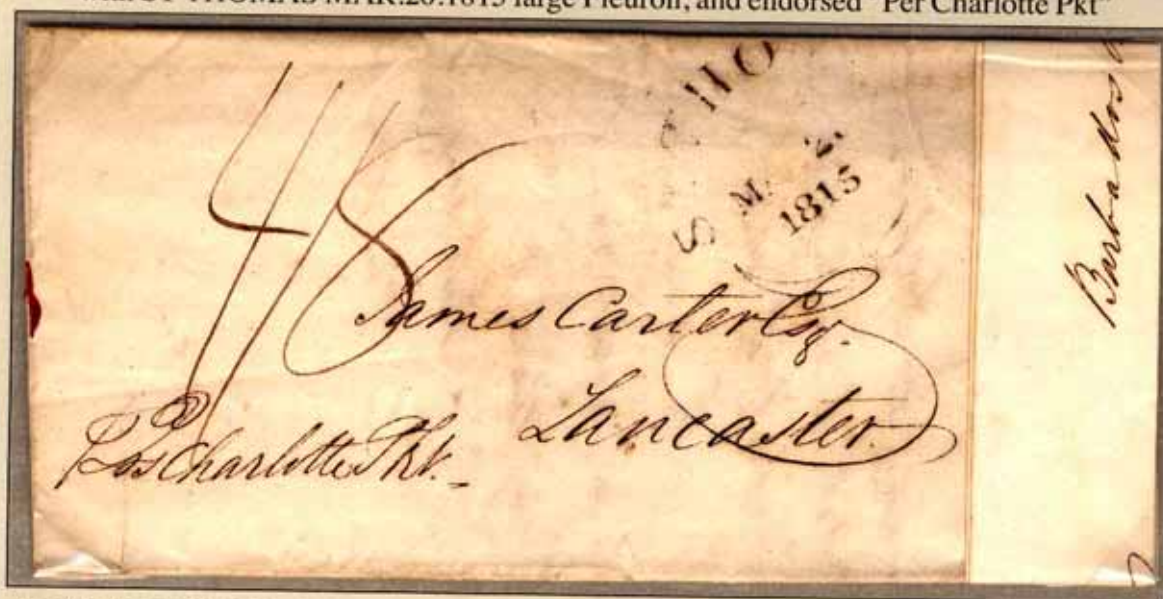 with ST THOMAS MAR.20.1815 large Fleuron, and endorsed "Per Charlotte Pkt"
4/8
S THO
M. 2.
1815
James Carter Esq.
Lancaster.
Charlotte Pkt.
Barbados